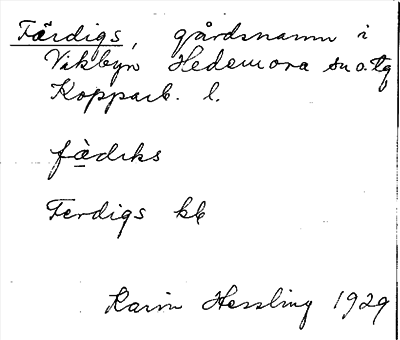 Färdigs, gårdsnamn i
Vikbyn Hedemora sn o. tg
Kopparb. l.
fàdiks
Ferdigs kb
Karin Hessling 1929